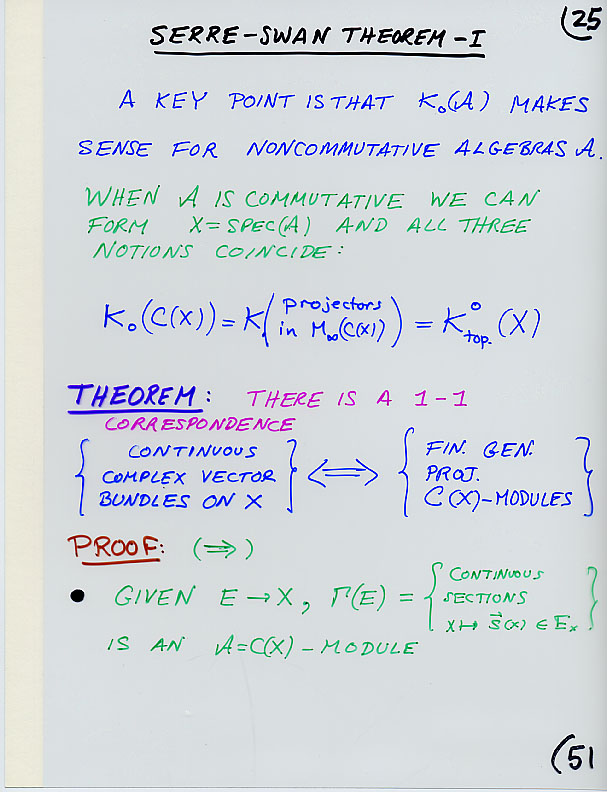 (25
SERRE-SWAN THEOREM-I
A KEY POINT IS THAT K₀(A) MAKES
SENSE FOR NONCOMMUTATIVE ALGEBRAS A.
WHEN A IS COMMUTATIVE WE CAN
FORM X=SPEC(A) AND ALL THREE
NOTIONS COINCIDE:
K₀(C(X)) = K(projectors in M∞(C(X))) = K⁰top.(X)
THEOREM: THERE IS A 1-1
CORRESPONDENCE
{ CONTINUOUS COMPLEX VECTOR BUNDLES ON X } ⟺ { FIN. GEN. PROJ. C(X)-MODULES }
PROOF: (⇒)
• GIVEN E→X, Γ(E) = { CONTINUOUS SECTIONS X↦ s⃗(x) ∈ Eₓ }
IS AN A=C(X)-MODULE
(51